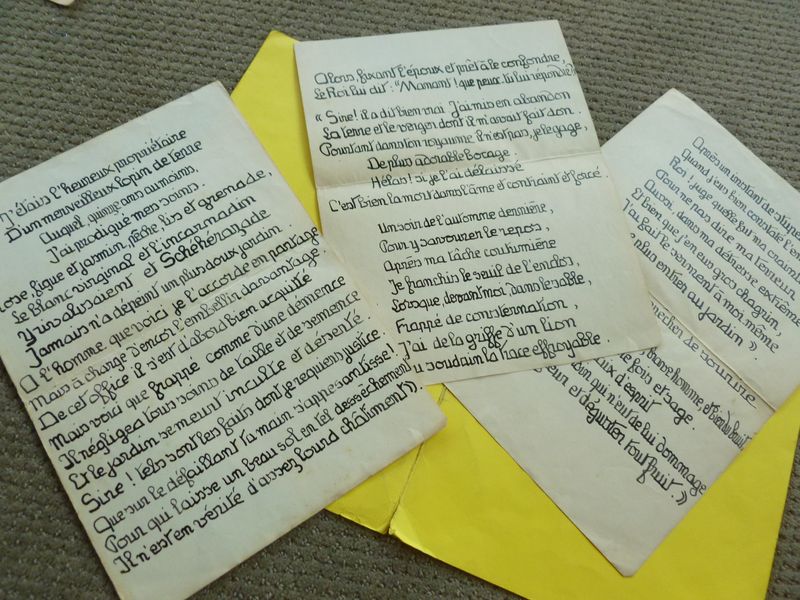 J'étais l'heureux propriétaire
D'un merveilleux lopin de terre
Auquel, quinze ans au moins,
J'ai prodigué mes soins.
Rose, figue et jasmin, pêche, lis et grenade,
Le blanc virginal et l'incarnadin
Y rivalisaient et Schéhérazade
Jamais n'a dépeint un plus doux jardin.
A l'homme que voici je l'accorde en partage
Mais à charge d'encor l'embellir davantage.
De cet office il s'est d'abord bien acquitté
Mais voici que frappé comme d'une démence
Il négligea tous soins de taille et de semence
Et le jardin se meurt inculte et déserté
Sire ! tels sont les faits dont je requiers justice
Que sur le défaillant ta main s'appesantisse !
Pour qui laisse un beau sol en tel dessèchement
Il n'est en vérité d'assez lourd châtiment ».
Alors, fixant l'époux et prêt à le confondre,
Le Roi lui dit : "Manant ! que peux-tu lui répondre ?
« Sire ! il a dit bien vrai. J'ai mis en abandon
La terre et le verger dont il m'avait fait don.
Pourtant dans ton royaume il n'est pas, je le gage,
De plus adorable bocage.
Hélas ! si je l'ai délaissé
C'est bien la mort dans l'âme et contraint et forcé.
Un soir de l'automne dernière,
Pour y savourer le repos,
Après ma tâche coutumière
Je franchis le seuil de l'enclos,
Lorsque, devant moi, dans le sable,
Frappé de consternation,
J'ai de la griffe d'un lion
Vu soudain la trace effroyable.
Après un instant de
Quand j'eus bien constaté l'e
Roi ! juge quelle fut ma crainte
Pour ne pas dire ma terreur.
Aussi, dans ma détresse extrême
Et bien que j'en eus gros chagrin,
J'ai fait le serment à moi même
plus entrer au jardin ».
de sourire
brave homme, et bien du bruit
fois et sage.
d'esprit
qui n'eut de lui dommage
et déguster ton fruit. »